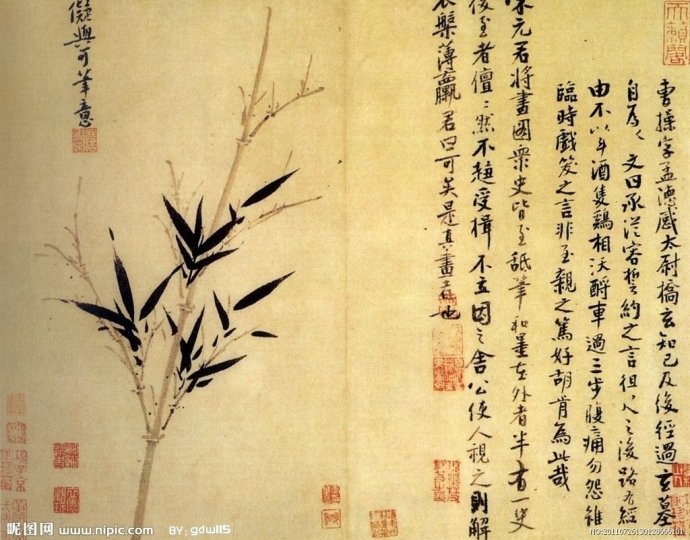 天籟閣
曹操字孟德感太尉橋玄知己及後經過玄墓
自為文曰承從容誓約之言徂之後路有經
由不以斗酒隻鷄相沃酹車過三步腹痛勿怨雖
臨時戲笑之言非至親之篤好胡肯為此哉
宋元君將畫圖眾史皆至舐筆和墨在外者半有一史
後至者儃〻然不趨受揖不立因之舍公使人視之則解
衣槃薄臝君曰可矣是真畫者也
儗與可筆意
昵图网 www.nipic.com BY: gdwll5